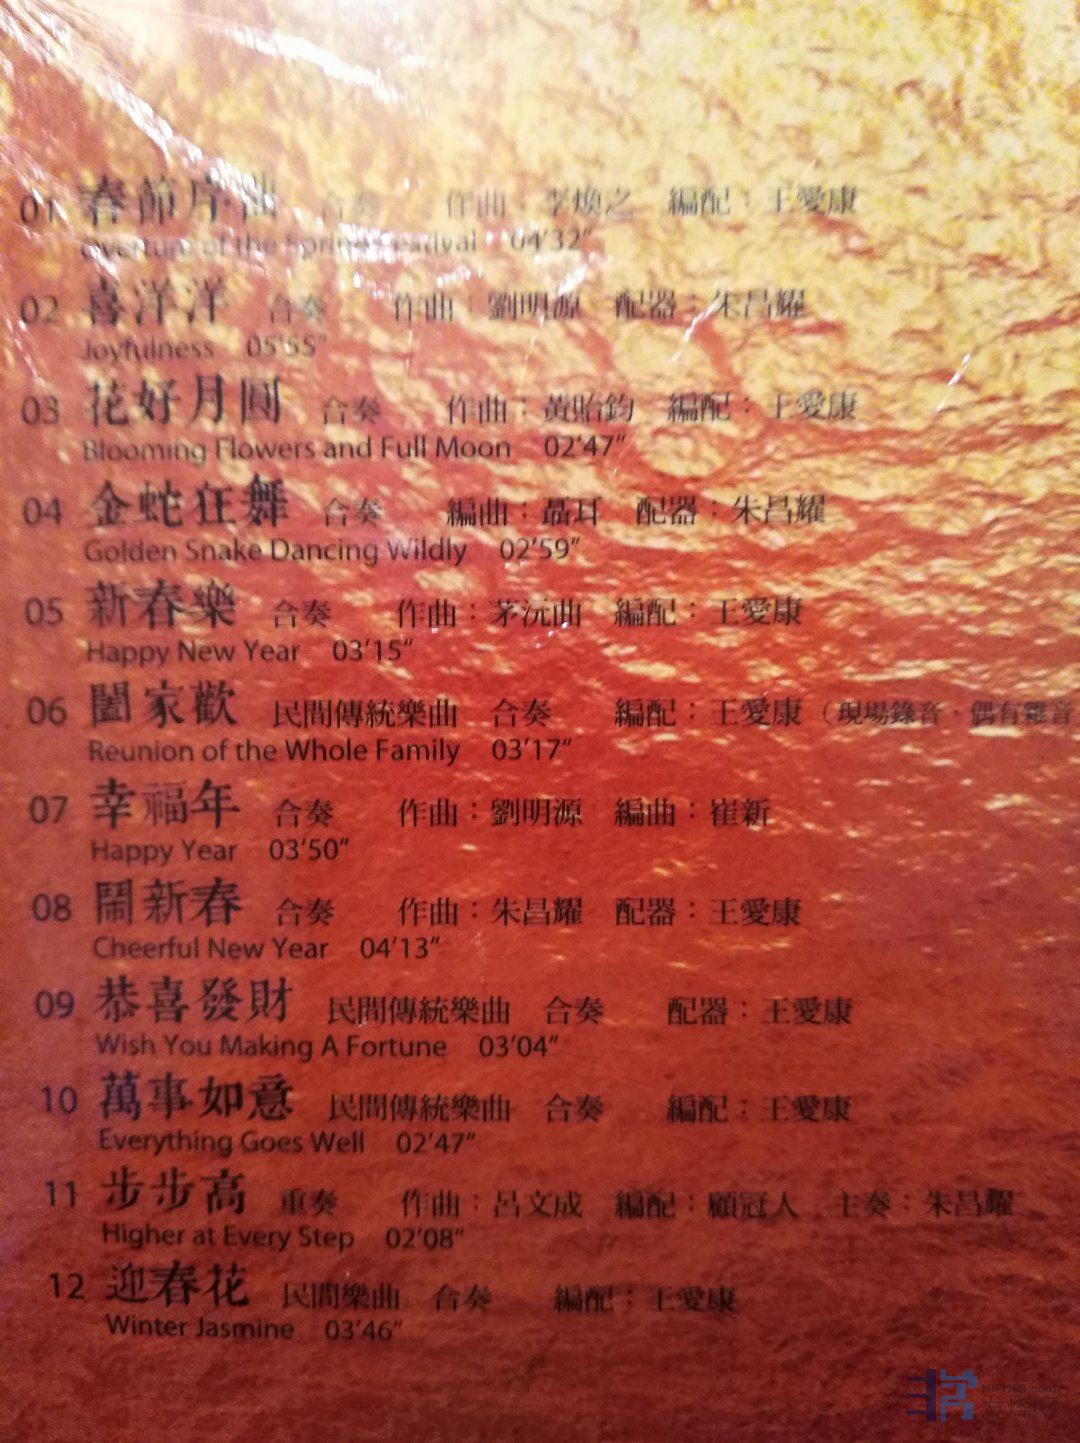 01 春節序曲 合奏 作曲：李煥之 編配：王愛康
Overture of the Spring Festival 04'32"
02 喜洋洋 合奏 作曲：劉明源 配器：朱昌耀
Joyfulness 05'55"
03 花好月圓 合奏 作曲：黃貽鈞 編配：王愛康
Blooming Flowers and Full Moon 02'47"
04 金蛇狂舞 合奏 編曲：聶耳 配器：朱昌耀
Golden Snake Dancing Wildly 02'59"
05 新春樂 合奏 作曲：茅沅曲 編配：王愛康
Happy New Year 03'15"
06 闔家歡 民間傳統樂曲 合奏 編配：王愛康（現場錄音，偶有雜音
Reunion of the Whole Family 03'17"
07 幸福年 合奏 作曲：劉明源 編曲：崔新
Happy Year 03'50"
08 鬧新春 合奏 作曲：朱昌耀 配器：王愛康
Cheerful New Year 04'13"
09 恭喜發財 民間傳統樂曲 合奏 配器：王愛康
Wish You Making A Fortune 03'04"
10 萬事如意 民間傳統樂曲 合奏 編配：王愛康
Everything Goes Well 02'47"
11 步步高 重奏 作曲：呂文成 編配：顧冠人 主奏：朱昌耀
Higher at Every Step 02'08"
12 迎春花 民間樂曲 合奏 編配：王愛康
Winter Jasmine 03'46"
非常
HIFI168.com
发烧网